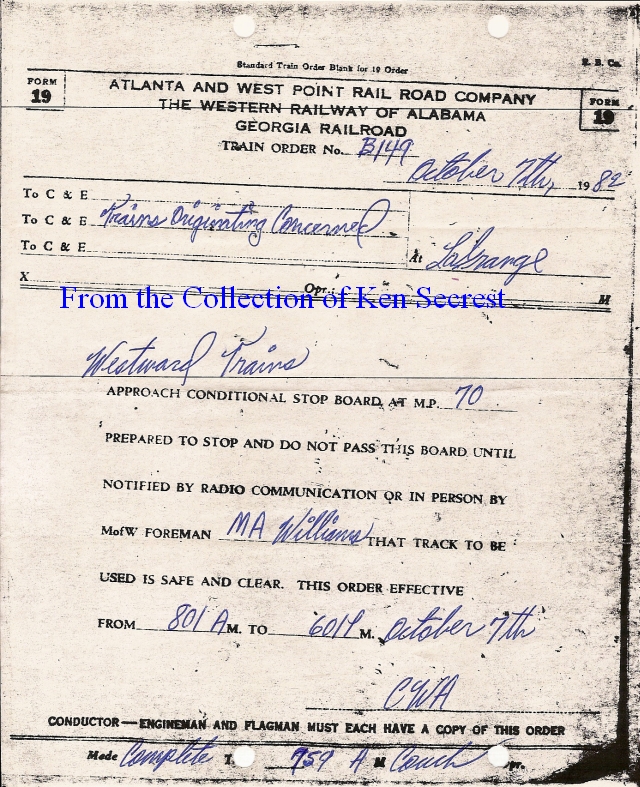 Standard Train Order Blank for 19 Order
R. R. Co.
FORM 19
ATLANTA AND WEST POINT RAIL ROAD COMPANY
THE WESTERN RAILWAY OF ALABAMA
GEORGIA RAILROAD
FORM 19
TRAIN ORDER No. B149
October 7th, 1982
To C & E
To C & E Trains Originting Concerned
To C & E
At LaGrange
X Opr.; M
From the Collection of Ken Secrest
Westward Trains
APPROACH CONDITIONAL STOP BOARD AT M.P. 70
PREPARED TO STOP AND DO NOT PASS THIS BOARD UNTIL
NOTIFIED BY RADIO COMMUNICATION OR IN PERSON BY
MofW FOREMAN MA Williams THAT TRACK TO BE
USED IS SAFE AND CLEAR. THIS ORDER EFFECTIVE
FROM 801 A M. TO 601 P M. October 7th
CWA
CONDUCTOR—ENGINEMAN AND FLAGMAN MUST EACH HAVE A COPY OF THIS ORDER
Made Complete T 759 A M Couch pr.